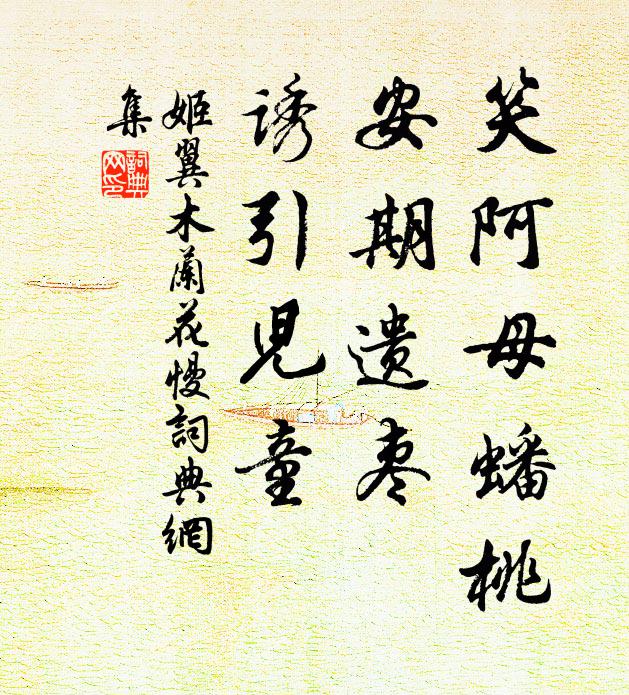 笑阿母蟠桃
安期遗枣
诱引児童
姬翼木蘭花慢詞典網
集
詞典
网印